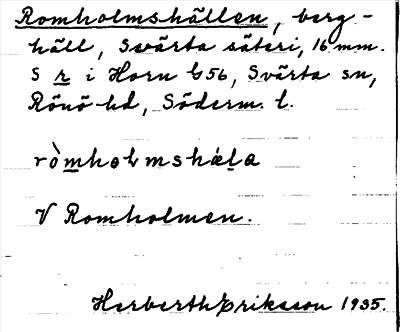 Romholmshällen, berg-
häll, Svärta säteri, 16 mm.
S r i Horn G56, Svärta sn,
Rönö hd, Söderm. l.
ròmholmshæla
V Romholmen.
Herberth Eriksson 1935.